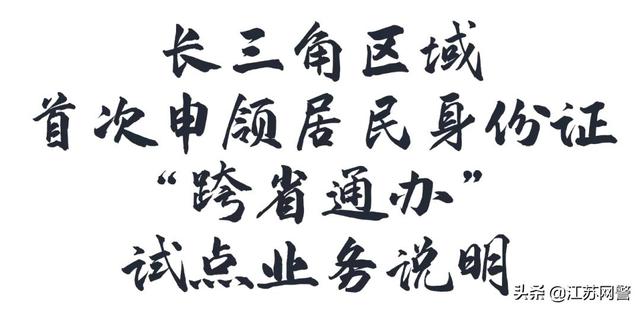 长三角区域
首次申领居民身份证
“跨省通办”
试点业务说明
头条 @江苏网警